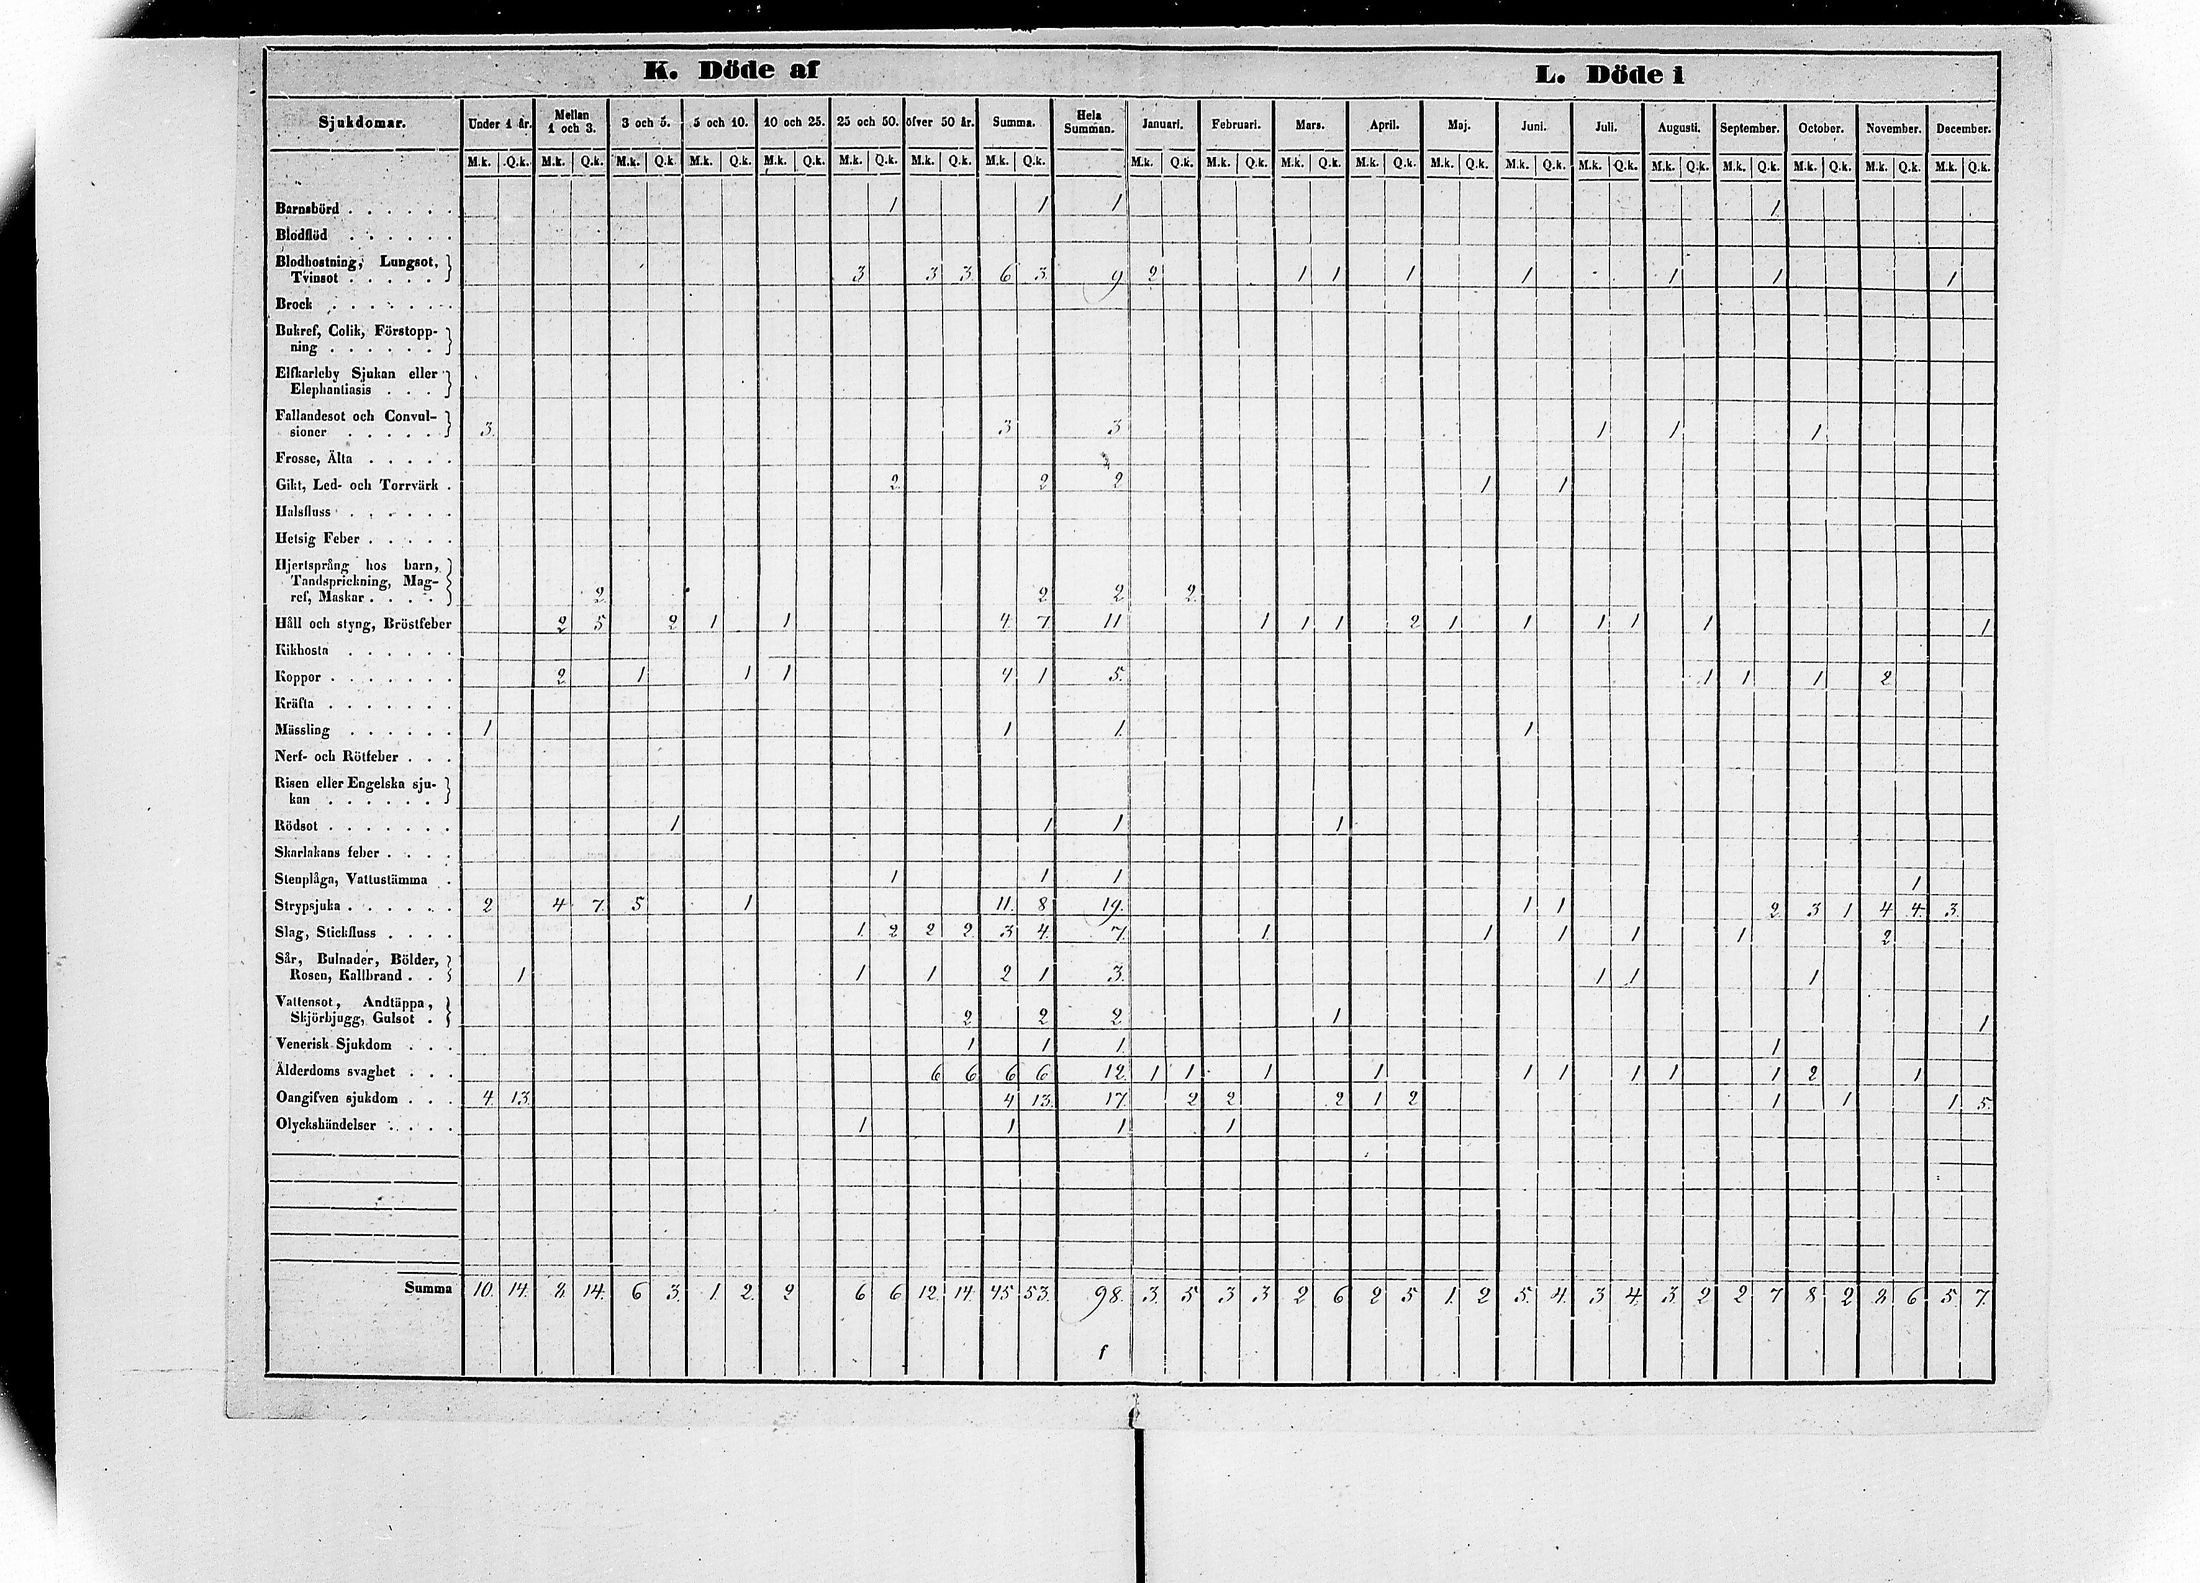 K. Döde af L. Döde i
Sjukdomar. Under 1 år. Mellan 1 och 3. 3 och 5. 5 och 10. 10 och 25. 25 och 50. öfver 50 år. Summa. Hela Summan. Januari. Februari. Mars. April. Maj. Juni. Juli. Augusti. September. October. November. December.
M.k. Q.k. M.k. Q.k. M.k. Q.k. M.k. Q.k. M.k. Q.k. M.k. Q.k. M.k. Q.k. M.k. Q.k. M.k. Q.k. M.k. Q.k. M.k. Q.k. M.k. Q.k. M.k. Q.k. M.k. Q.k. M.k. Q.k. M.k. Q.k. M.k. Q.k. M.k. Q.k. M.k. Q.k. M.k. Q.k.
Barnsbörd . . . . . . 1 1 1 1
Blodflöd . . . . . .
Blodhostning, Lungsot,
Tvinsot . . . . . 3 3 3 6 3 9 2 1 1 1 1 1 1 1
Brock . . . . . . .
Bukref, Colik, Förstopp-
ning . . . . . .
Elfkarleby Sjukan eller
Elephantiasis . . .
Fallandesot och Convul-
sioner . . . . . 3. 3 3 1 1 1
Frosse, Älta . . . . .
Gikt, Led- och Torrvärk . 2 2 2 1 1
Halsfluss . . . . . .
Hetsig Feber . . . . .
Hjertsprång hos barn,
Tandsprickning, Mag-
ref, Maskar . . . . 2 2 2 2
Håll och styng, Bröstfeber 2 5 2 1 1 4 7 11 1 1 1 2 1 1 1 1 1 1
Kikhosta . . . . . .
Koppor . . . . . . . 2 1 1 1 4 1 5. 1 1 1 2
Kräfta . . . . . . .
Mässling . . . . . . 1 1 1. 1
Nerf- och Rötfeber . . .
Risen eller Engelska sju-
kan . . . . . .
Rödsot . . . . . . . 1 1 1 1
Skarlakans feber . . . .
Stenplåga, Vattustämma . 1 1 1 1
Strypsjuka . . . . . . 2 4 7. 5 1 11. 8 19. 1 1 2 3 1 4 4 3.
Slag, Stickfluss . . . . 1. 2 2 2. 3 4. 7. 1 1 1 1 1 2
Sår, Bulnader, Bölder,
Rosen, Kallbrand . . 1 1 1 2 1 3. 1 1 1
Vattensot, Andtäppa,
Skjörbjugg, Gulsot . 2 2 2 1 1
Venerisk Sjukdom . . . 1 1 1. 1
Älderdoms svaghet . . . 6 6 6 6 12. 1 1 1 1 1 1 1 1 1 2 1
Oangifven sjukdom . . . 4. 13. 4 13. 17. 2 2 2 1 2 1 1 1 5.
Olyckshändelser . . . . 1 1 1 1
Summa 10. 14. 8 14. 6 3. 1. 2. 2 6 6 12. 14. 45 53. 98. 3. 5 3 3 2 6 2 5 1. 2 5. 4. 3 4. 3. 2 2 7 8 2 8 6 5 7.